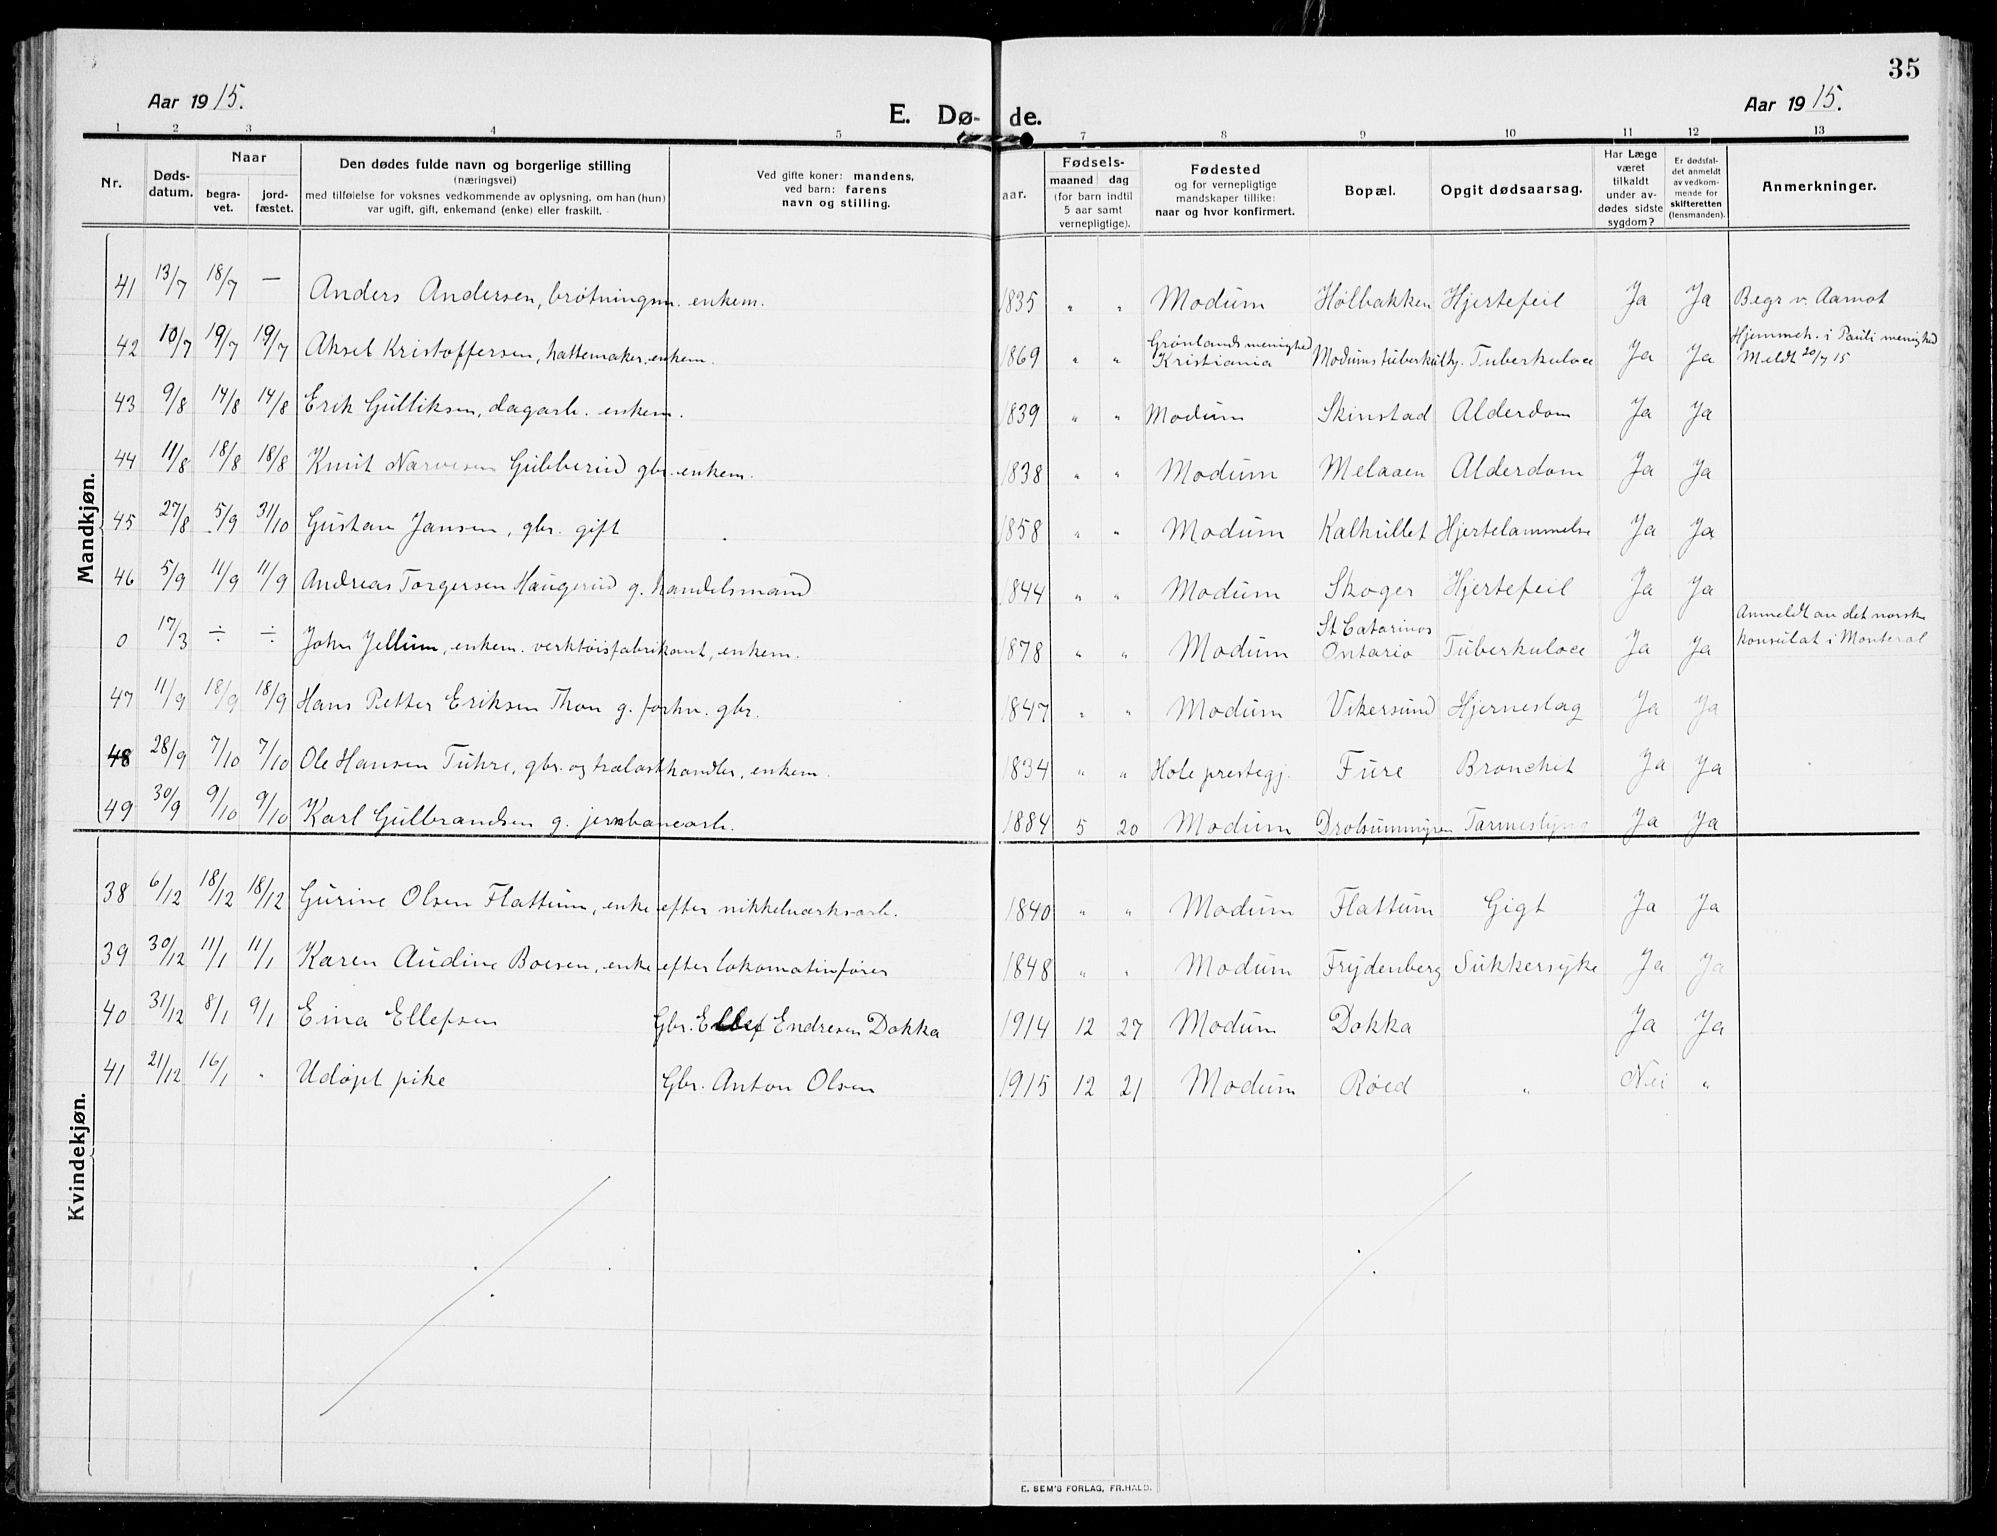 35
Aar 1915.
E. Døde.
Aar 1915.
1 2 3 4 5 7 8 9 10 11 12 13
Nr. Døds-datum. Naar begra-vet. jord-fæstet. Den dødes fulde navn og borgerlige stilling (næringsvei) med tilføielse for voksnes vedkommende av oplysning, om han (hun) var ugift, gift, enkemand (enke) eller fraskilt. Ved gifte koner: mandens, ved barn: farens navn og stilling. aar. Fødsels- maaned dag (for barn indtil 5 aar samt vernepligtige). Fødested og for vernepligtige mandskaper tillike: naar og hvor konfirmert. Bopæl. Opgit dødsaarsag. Har Læge været tilkaldt under av-dødes sidste sygdom? Er dødsfal-det anmeldt av vedkom-mende for skifteretten (lensmanden). Anmerkninger.
Mandkjøn.
41 13/7 18/7 — Anders Andersen, brøtningsm. enkem. 1835 " " Modum Hølbakken Hjertefeil Ja Ja Begr v. Aamot
42 10/7 19/7 19/7 Aksel Kristoffersen, hattemaker, enkem. 1869 " " Grønlands menighed Kristiania Modums tuberkulhj. Tuberkuloce Ja Ja Hjemmeh. i Pauli menighed Meldt 20/7 15
43 9/8 14/8 14/8 Erik Gulliksen, dagarb. enkem. 1839 " " Modum Skinstad Alderdom Ja Ja
44 11/8 18/8 18/8 Knut Narvesen Gubberud gbr. enkem. 1838 " " Modum Melaaen Alderdom Ja Ja
45 27/8 5/9 31/10 Gustav Jansen, gbr. gift 1858 " " Modum Kalhullet Hjertelammelse Ja Ja
46 5/9 11/9 11/9 Andreas Torgersen Haugerud g. handelsmand 1844 " " Modum Skoger Hjertefeil Ja Ja
0 17/3 ÷ ÷ John Jellum, enkem. verktøisfabrikant, enkem. 1878 " " Modum St Catarinos Ontario Tuberkuloce Ja Ja Anmeldt av det norske konsulat i Monteral
47 11/9 18/9 18/9 Hans Petter Eriksen Thon g. forhv. gbr. 1847 " " Modum Vikersund Hjerneslag Ja Ja
48 28/9 7/10 7/10 Ole Hansen Tuhre, gbr. og trælasthandler, enkem. 1834 " " Hole prestegj. Fure Bronchit Ja Ja
49 30/9 9/10 9/10 Karl Gulbrandsen g. jernbanearb. 1884 5 20 Modum Drolsummyren Tarmeslyng Ja Ja
Kvindekjøn.
38 6/12 18/12 18/12 Gurine Olsen Flattum, enke efter nikkelverksarb. 1840 " " Modum Flattum Gigt Ja Ja
39 30/12 11/1 11/1 Karen Audine Boesen, enke efter lokomotivfører 1848 " " Modum Frydenberg Sukkersyke Ja Ja
40 31/12 8/1 9/1 Eina Ellefsen Gbr. Ellef Endresen Dokka 1914 12 27 Modum Dokka Ja Ja
41 21/12 16/1 " Udøpt pike Gbr. Anton Olsen 1915 12 21 Modum Røed " Nei "
E. SEM'S FORLAG, FR.HALD.